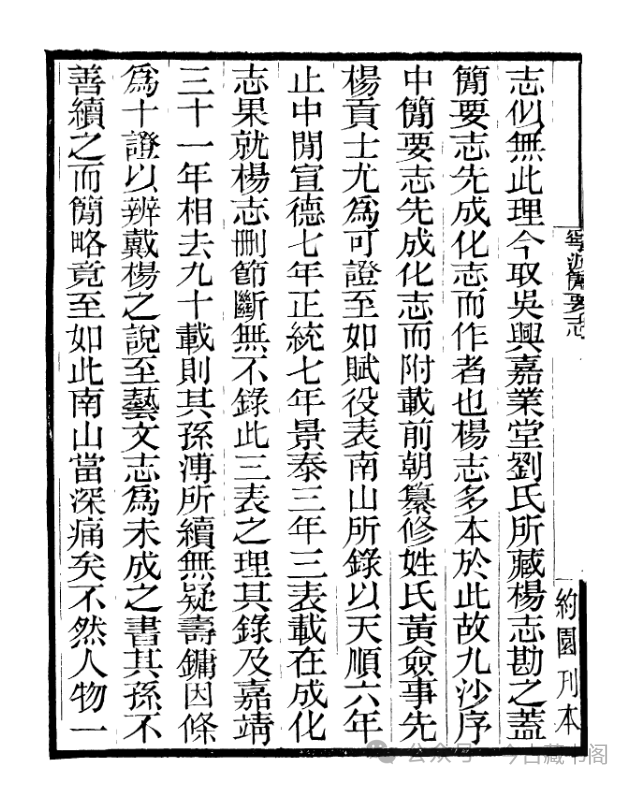 志似無此理今取吳興嘉業堂劉氏所藏楊志勘之蓋
簡要志先成化志而作者也楊志多本於此故九沙序
中簡要志先成化志而附載前朝纂修姓氏黃僉事先
楊貢士尤爲可證至如賦役表南山所錄以天順六年
止中閒宣德七年正統七年景泰三年三表載在成化
志果就楊志刪節斷無不錄此三表之理其錄及嘉靖
三十一年相去九十載則其孫溥所續無疑壽鏞因條
爲十證以辨戴楊之說至藝文志爲未成之書其孫不
善續之而簡略竟至如此南山當深痛矣不然人物一
寧波簡要志
約園刊本
公众号·今古藏书阁